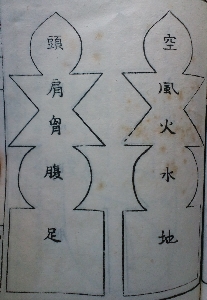 空風火水地
頭肩胷腹足